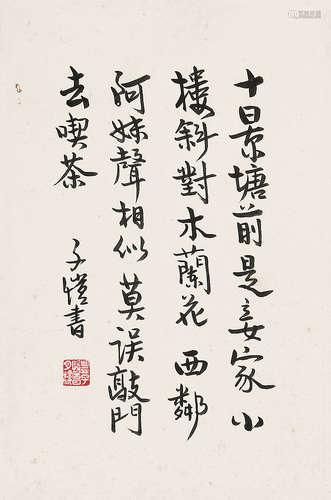 十景塘前是妾家小
楼斜對木蘭花西鄰
阿妹聲相似莫误敲門
去喫茶
子愷書